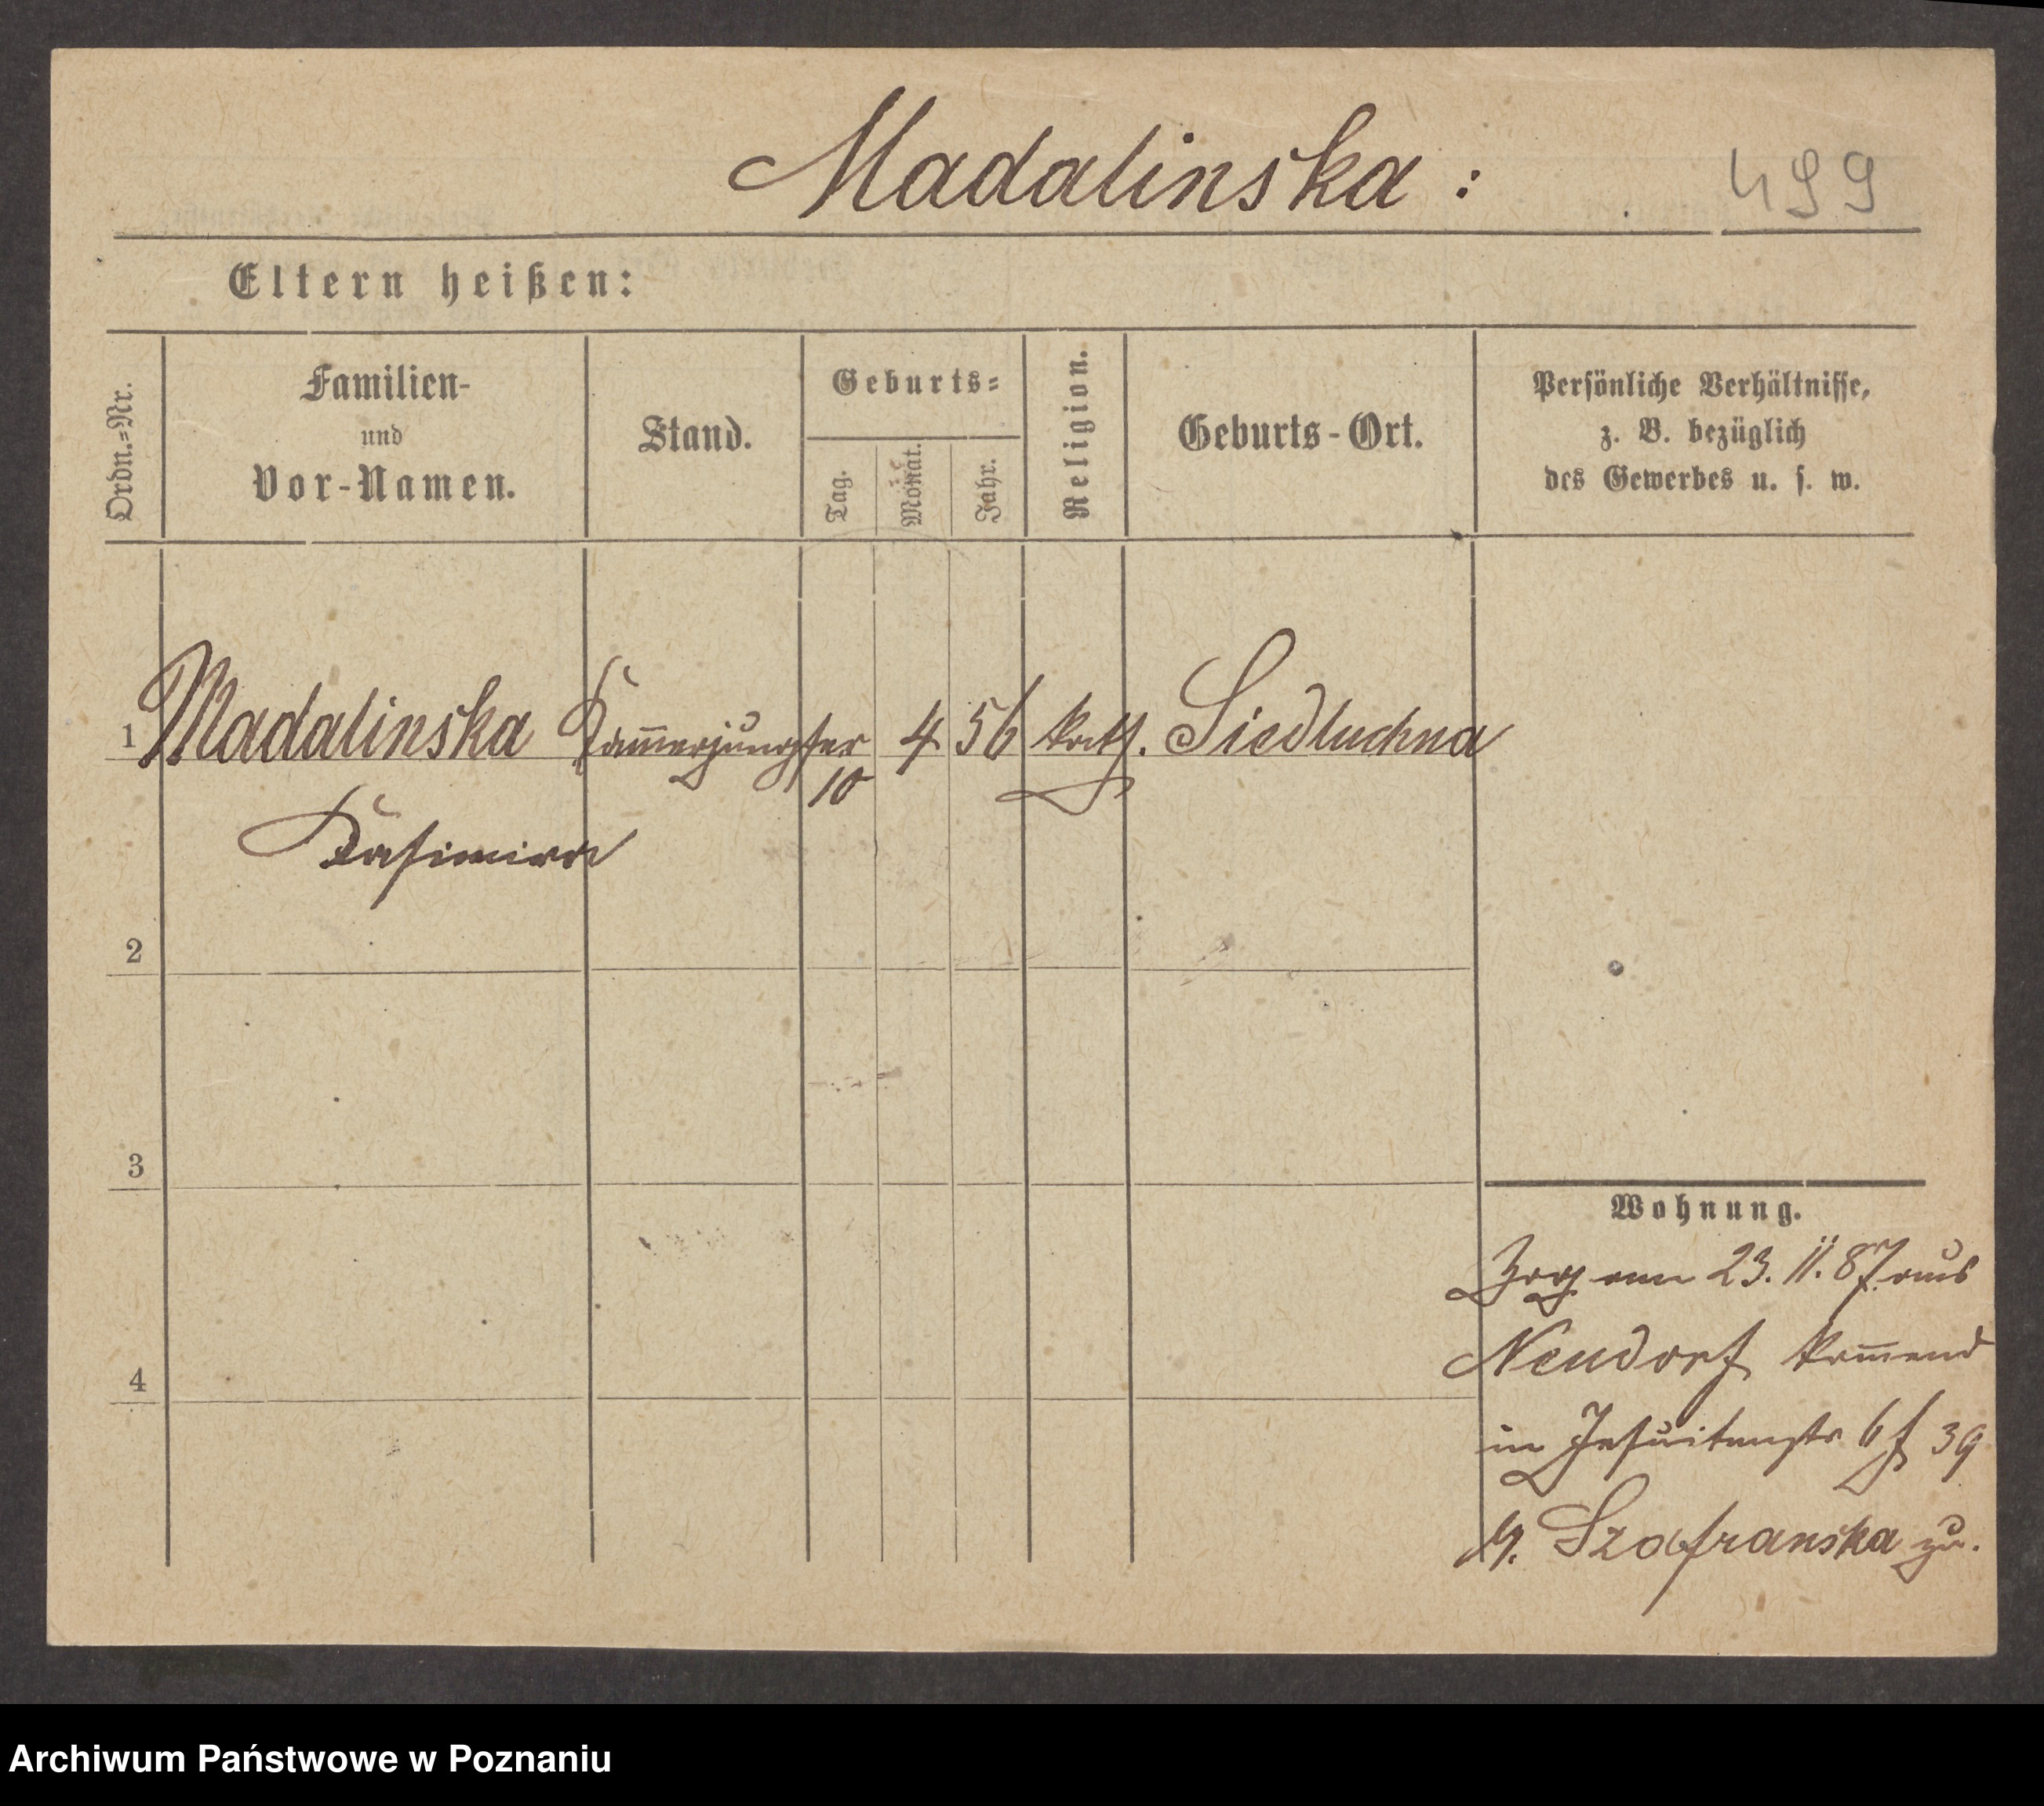 Madalinska :
499
Eltern heißen:
Ordn.=Nr.
Familien-
und
Vor-Namen.
Stand.
Geburts=
Tag.
Monat.
Jahr.
Religion.
Geburts-Ort.
Persönliche Verhältnisse,
z. B. bezüglich
des Gewerbes u. s. w.
1 Madalinska Kam̅erjungfer 10 4 56 kath. Siedluchna
Kasimira
2
3
4
Wohnung.
Zog am 23. 11. 87 aus
Neudorf kom̅end
in Jesuitenstr 39
Szafranska zu.
Archiwum Państwowe w Poznaniu